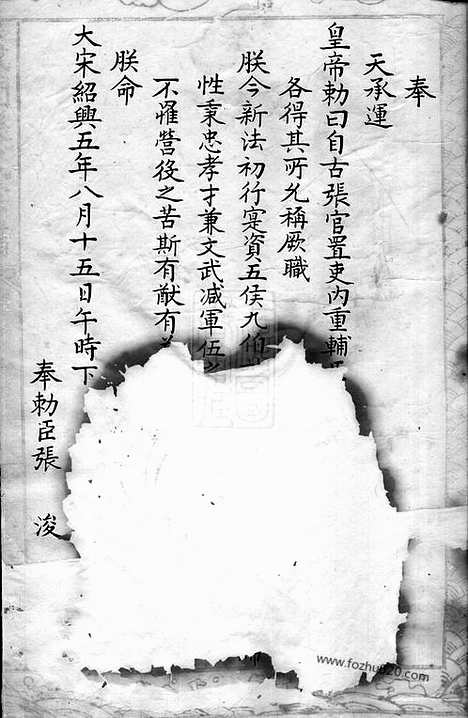 奉
天承運
皇帝勅曰自古張官置吏內重輔
各得其所允稱厥職
朕今新法初行寔資五侯九伯
性秉忠孝才兼文武減軍伍
不罹營役之苦斯有猷有
朕命
大宋紹興五年八月十五日午時下
奉勅臣張 浚
www.fozhu920.com